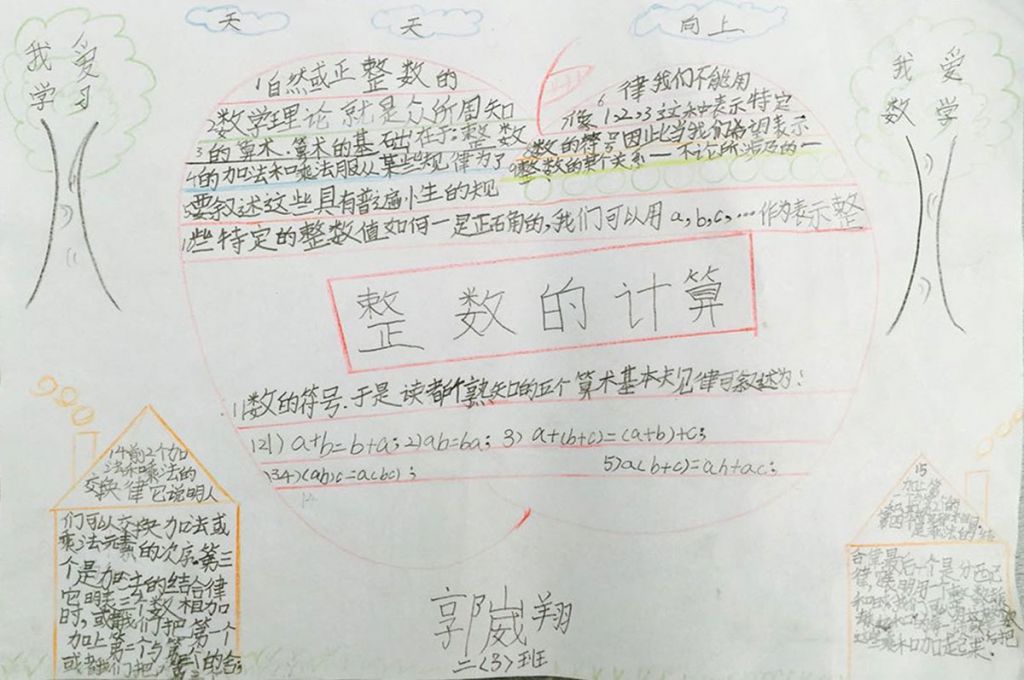 天
天
向上
我 爱
学 习
我 爱
数 学
1自然或正整数的
2数学理论就是众所周知
3的算术.算术的基础在于:整数
4的加法和乘法服从某些规律为了
5要叙述这些具有普遍小生的规
6律我们不能用
7像1.2.3这种表示特定
8数的符号因此当我们希望表示
9整数的某个关系一不论所涉及的一
10些特定的整数值如何一是正石角的,我们可以用 a,b,c,…作为表示整
整数的计算
11数的符号.于是读者所熟知的五个算术基本规律可叙述为:
121) a+b=b+a; 2)ab=ba; 3) a+(b+c)=(a+b)+c;
134)(ab)c=a(bc);
5)a(b+c)=ab+ac;
14前2个加
法和乘法的
交换律它说明人
们可以交换加法或
乘法元素的次序.第三
个是加法的结合律
它明表三个数相加
时,或我们把第一个
加上第二个与第三个的合;
或者我们把
15
加上第
第四个是乘法的结
合律最后一个是分配
律,表明用一个整数
郭崴翔
二<3>班